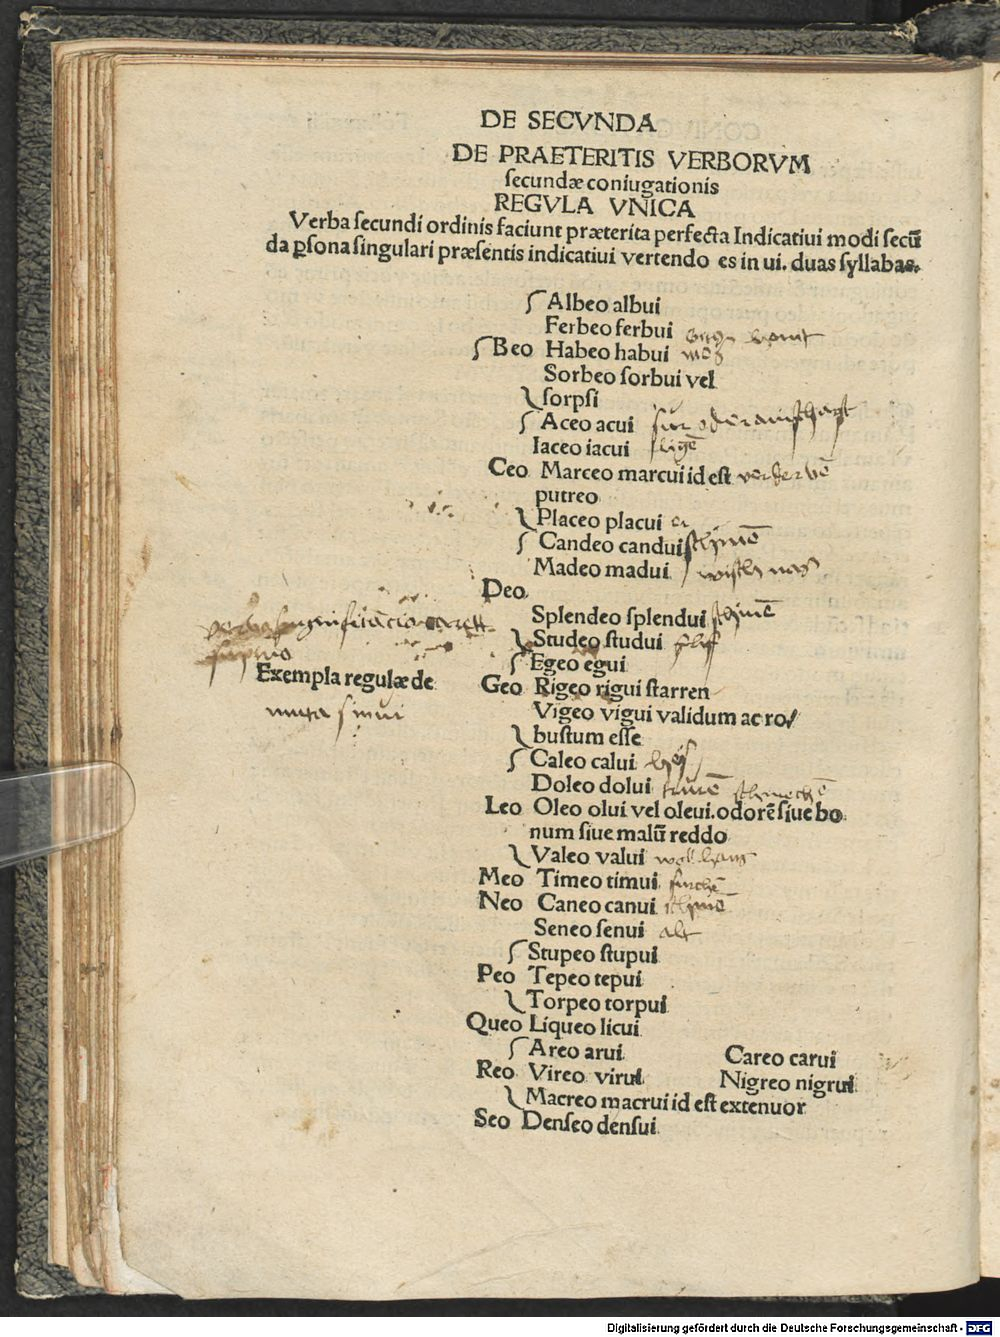 DE SECVNDA
DE PRAETERITIS VERBORVM
ſecundæ coniugationis
REGVLA VNICA
Verba ſecundi ordinis faciunt præterita perfecta Indicatiui modi ſecū
da ꝑſona ſingulari præſentis indicatiui vertendo es in ui. duas ſyllabas.
Albeo albui
Ferbeo ferbui
Beo Habeo habui
Sorbeo ſorbui vel
ſorpſi
Aceo acui
Iaceo iacui ligē
Ceo Marceo marcui id eſt
putreo
Placeo placui
Candeo candui
Madeo madui
Deo
Splendeo ſplendui
Studeo ſtudui
Egeo egui
Exempla regulæ de
Geo Rigeo rigui ſtarren
Vigeo vigui validum ac ro/
buſtum eſſe
Caleo calui
Doleo dolui
Leo Oleo olui vel oleui. odorē ſiue bo
num ſiue malū reddo
Valeo valui
Meo Timeo timui
Neo Caneo canui
Seneo ſenui alt
Stupeo ſtupui
Peo Tepeo tepui
Torpeo torpui
Queo Liqueo licui
Areo arui Careo carui
Reo Vireo virui Nigreo nigrui
Macreo macrui id eſt extenuor
Seo Denſeo denſui
Digitalisierung gefördert durch die Deutsche Forschungsgemeinschaft - DFG